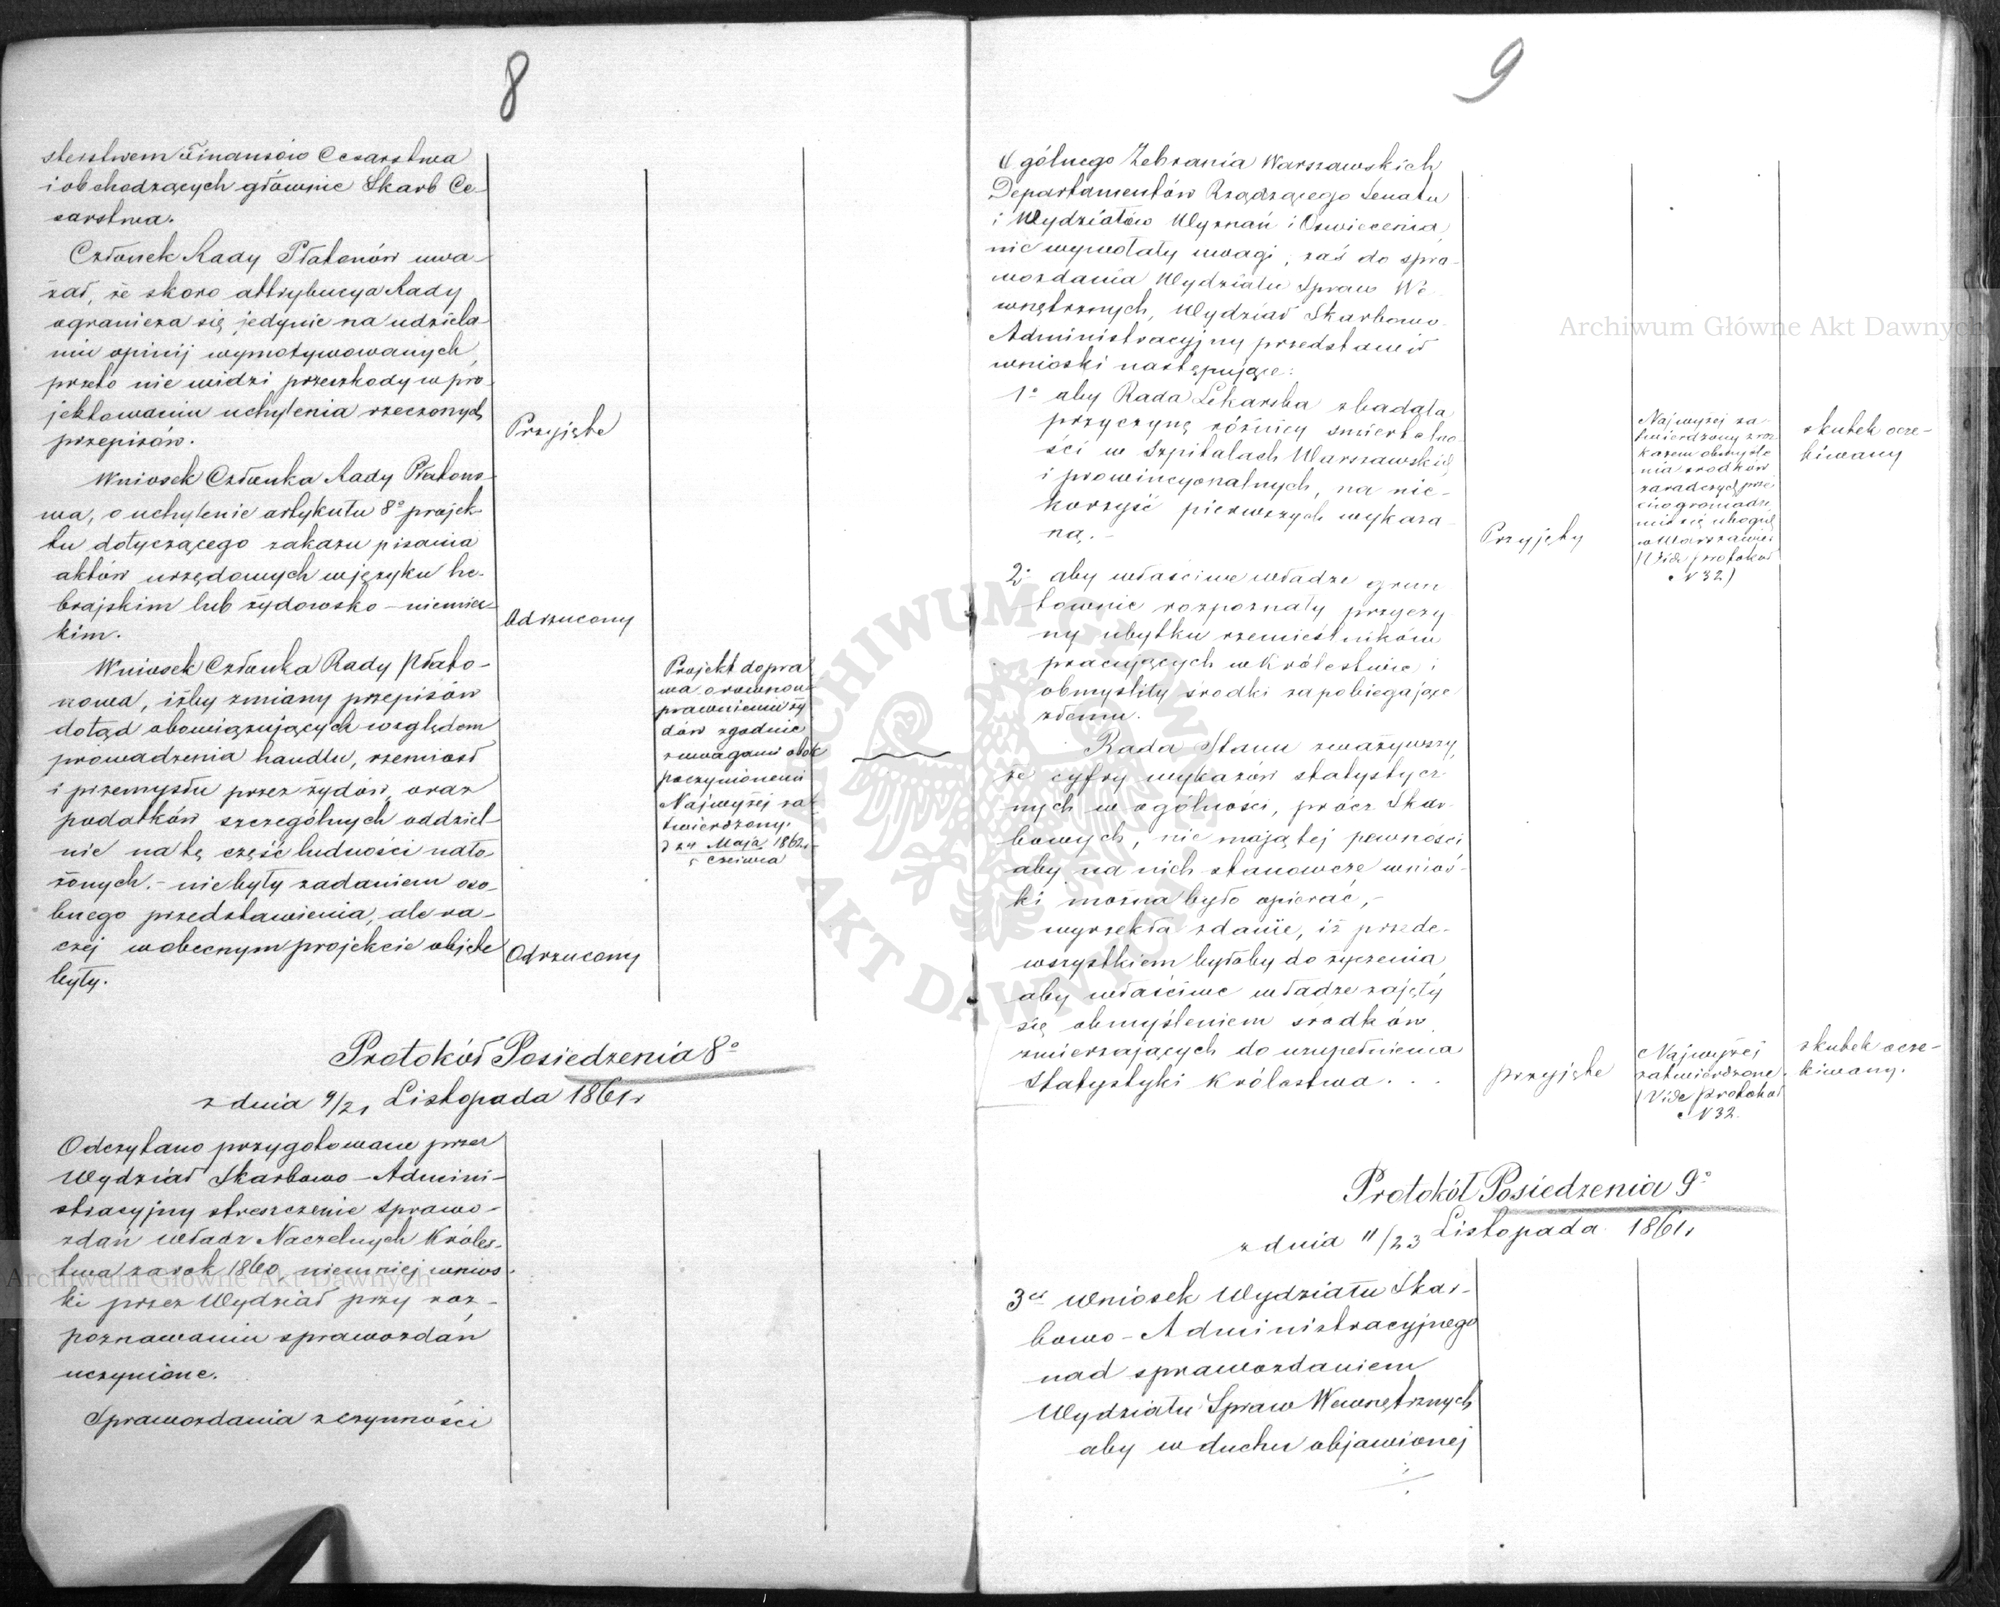 8
sterstwem Finansów Cesarstwa
i obchodzących głównie Skarb Ce-
sarstwa.
Członek Rady Płatonów uwa-
żał, że skoro attrybucya Rady
ogranicza się jedynie na udziela-
niu opinij wymotywowanych,
przeto nie widzi przeszkody w pro-
jektowaniu uchylenia rzeczonych
przepisów.
Przyjęte
Wniosek Członka Rady Płatono-
wa, o uchylenie artykułu 8º projek-
tu dotyczącego zakazu pisania
aktów urzędowych w języku he-
brajskim lub żydowsko-niemiec-
kim.
Odrzucony
Wniosek Członka Rady Płato-
nowa, iżby zmiany przepisów
dotąd obowiązujących względem
prowadzenia handlu, rzemiosł
i przemysłu przez żydów, oraz
podatków szczególnych oddziel-
nie na tę część ludności nało
żonych. - nie były zadaniem oso-
bnego przedstawienia, ale ra-
czej w obecnym projekcie objęte
były.
Odrzucony
Projekt do pra
wa o równou-
prawnieniu ży
dów zgodnie
z uwagami obok
poczynionemi
Najwyżej za-
twierdzony.
d 24 Maja 1862 r.
5 Czerwca
Protokół Posiedzenia 8º
z dnia 9/21 Listopada 1861 r.
Odczytano przygotowane przez
Wydział Skarbowo-Admini-
stracyjny streszczenie sprawo-
zdań Władz Naczelnych Króles-
twa za rok 1860, niemniej wnios-
ki przez Wydział przy roz-
poznawaniu sprawozdań
uczynione.
Sprawozdania z czynności
9
Ogólnego Zebrania Warszawskich
Departamentów Rządzącego Senatu
i Wydziałów Wyznań i Oświecenia
nie wywołały uwagi, zaś do spra-
wozdania Wydziału Spraw We-
wnętrznych, Wydział Skarbowo-
Administracyjny przedstawił
wnioski następujące:
1º aby Rada Lekarska zbadała
przyczynę różnicy śmiertelno-
ści w Szpitalach Warszawskich
i prowincyonalnych, na nie-
korzyść pierwszych wykaza-
ną.-
Przyjęty
Najwyżej za-
twierdzony z roz-
kazem obmyśle
nia środków
zaradczych prze
ciw gromadze
niu się ubogich
w Warszawie
(Vide protokół
N 32)
skutek ocze-
kiwany
2º aby właściwe władze grun
townie rozpoznały przyczy
ny ubytku rzemieślników
pracujących w Królestwie i
obmyśliły środki zapobiegające
złemu.
Rada Stanu zważywszy,
że cyfry wykazów statystycz-
nych w ogólności, prócz Skar-
bowych, nie mają tej pewności
aby na nich stanowcze wnios-
ki można było opierać,-
wyrzekła zdanie, iż przede-
wszystkiem byłoby do życzenia,
aby właściwe władze zajęły
się obmyśleniem środków,
zmierzających do uzupełnienia
Statystyki Królestwa. . .
przyjęte
Najwyżej
zatwierdzone.
(Vide protokół
N 32.
skutek ocze-
kiwany.
Protokół Posiedzenia 9º
z dnia 11/23 Listopada 1861 r.
3ci Wniosek Wydziału Skar-
bowo-Administracyjnego
nad sprawozdaniem
Wydziału Spraw Wewnętrznych
aby w duchu objawionej
Archiwum Główne Akt Dawnych
Archiwum Główne Akt Dawnych
ARCHIWUM GŁÓWNE
AKT DAWNYCH